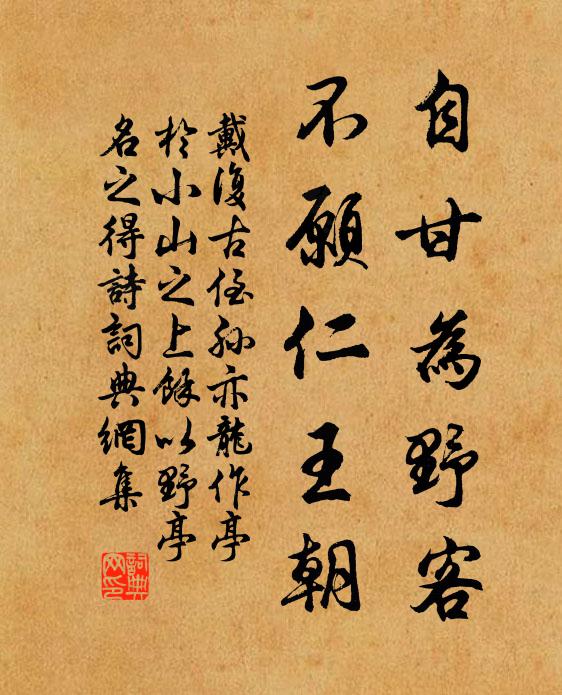 自甘為野客
不願仁王朝
戴復古侄孫亦龍作亭
於小山之上餘以野亭
名之得詩詞典網集
詞典
网印